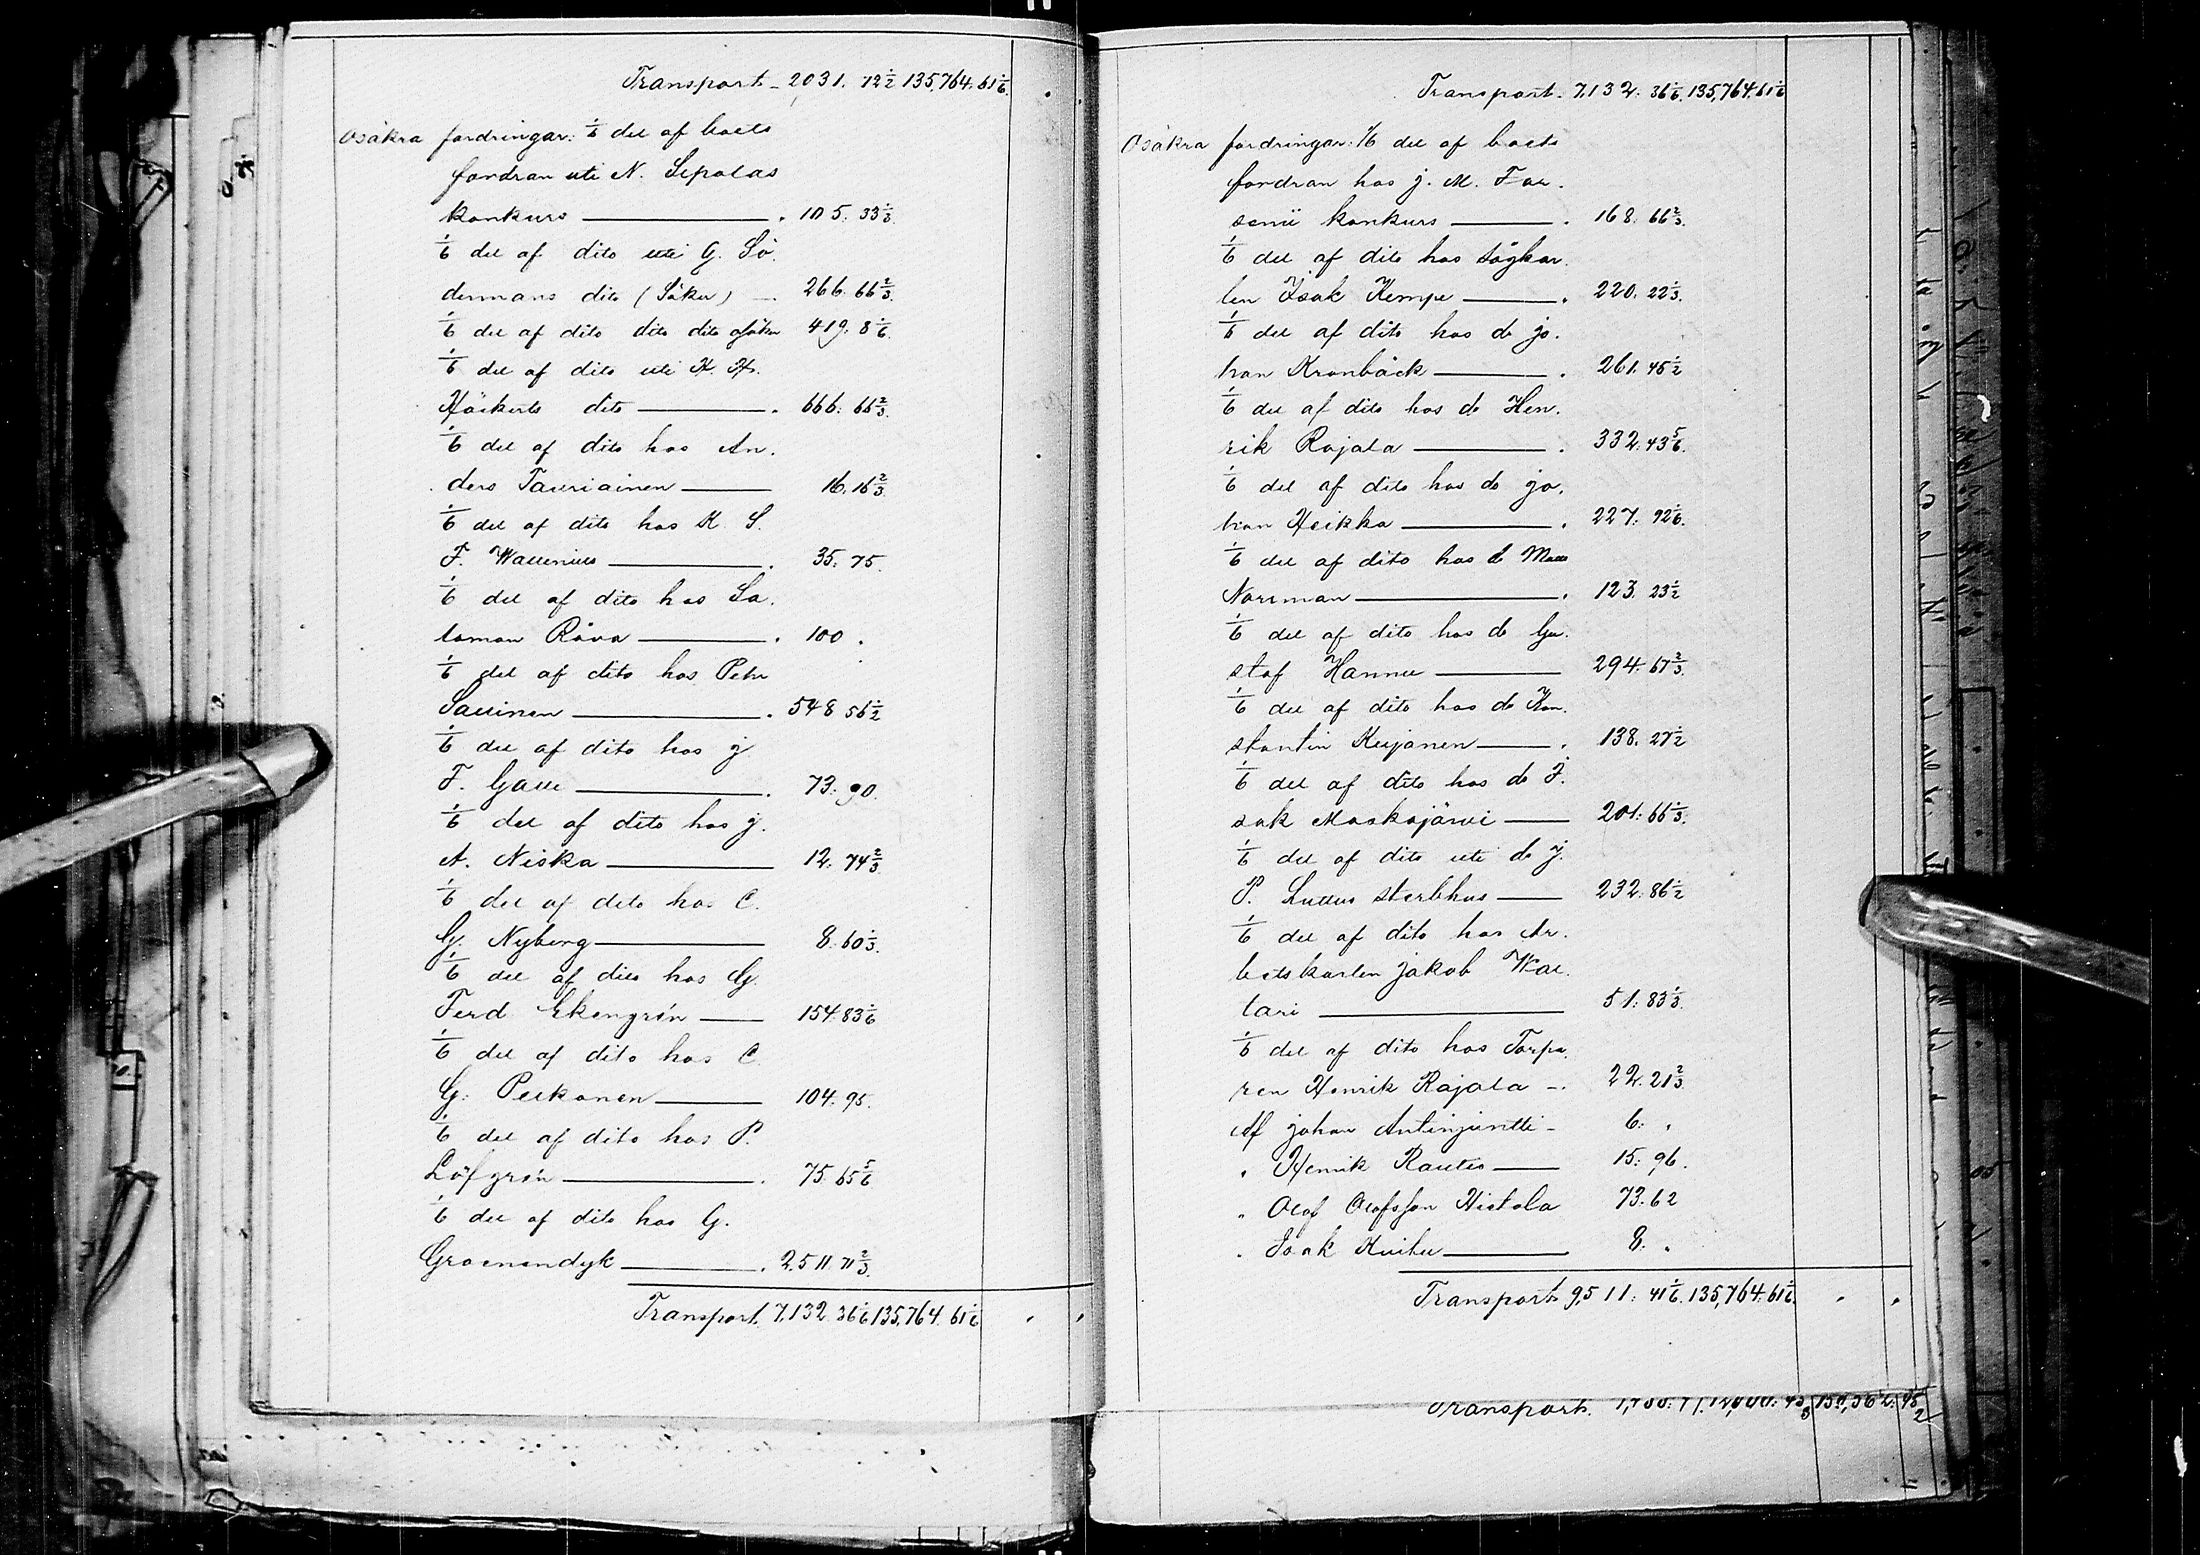 Transport 2031. 72 1/2 135,764. 61 1/6
Osäkra fordringar: 1/6 del af boets
fordran uti N. Sipolas
konkurs 105. 33 1/3
1/6 del af dito uti G. Sö-
dermans dito (Säker) 266. 66 2/3
1/6 del af dito dito dito osäker 419. 8 1/6
1/6 del af dito uti K. H.
Häckerts dito 666. 66 2/3
1/6 del af dito hos An-
ders Tauriainen 16. 16 2/3
1/6 del af dito hos K. S.
F. Wallenius 35. 75.
1/6 del af dito hos Sa-
lomon Räva 100.
1/6 del af dito hos Petter
Saarinen 548 56 1/2
1/6 del af dito hos J.
F. Galle 73: 90.
1/6 del af dito hos J.
A. Niska 12. 74 2/3
1/6 del af dito hos C.
G. Nyberg 8. 60 1/3
1/6 del af dito hos G.
Ferd Ekengrén 154. 83 1/6
1/6 del af dito hos C.
G. Pelkonen 104. 95.
1/6 del af dito hos P.
Löfgrén 75. 65 5/6
1/6 del af dito hos G.
Groenendyk 2,511. 71 2/3
Transport 7,132. 36 1/6 135,764. 61 1/6
Transport 7,132. 36 1/6 135,764. 61 1/6
Osäkra fordringar: 1/6 del af boets
fordran hos J. M. For-
senii konkurs 168. 66 2/3
1/6 del af dito hos sågkar-
len Isak Kempe 220. 22 1/3
1/6 del af dito hos do Jo-
han Kronbäck 261. 45 1/2
1/6 del af dito hos do Hen-
rik Rajala 332. 43 5/6
1/6 del af dito hos do Jo-
han Heikka 227. 92 1/6
1/6 del af dito hos do Matts
Norrman 123. 23 1/2
1/6 del af dito hos do Gu-
staf Hannu 294. 67 2/3
1/6 del af dito hos do Kon-
stantin Keijanen 138. 27 1/2
1/6 del af dito hos do I-
sak Moskojärvi 201: 66 1/3
1/6 del af dito uti do J.
P. Luttus sterbhus 232. 86 1/2
1/6 del af dito hos Ar-
betskarlen Jakob Wal-
tari 51: 83 1/3
1/6 del af dito hos Torpa-
ren Henrik Rajala 22. 21 2/3
Af Johan Antinjuntti 6: "
" Henrik Rautio 15: 96.
" Olof Olofsson Hietala 73. 62
" Isak Kuitu 8. "
Transport 9,511: 41 1/6 135,764. 61 1/6
Transport